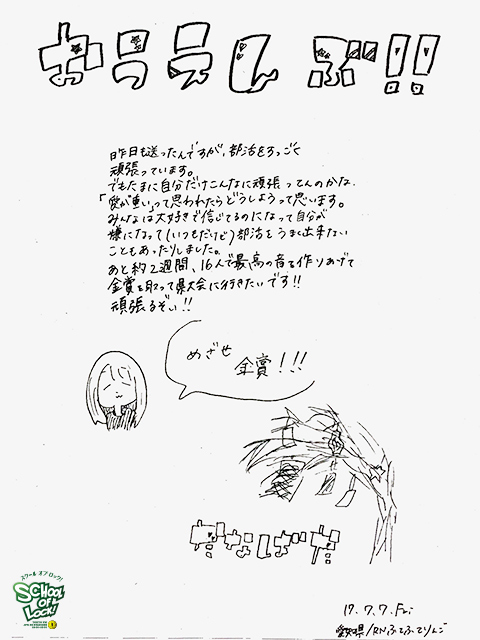 おうえんぶ!!
昨日も送ったんですが、部活をすっごく
頑張っています。
でもたまに自分だけこんなに頑張ってんのかな、
「愛が重い」って思われたらどうしようって思います。
みんなは大好きで信じてるのになって自分が
嫌になって(いつもだけど)部活をうまく出来ない
こともあったりしました。
あと約2週間、16人で最高の音を作りあげて
金賞を取って県大会に行きたいです!!
頑張るぞい!!
めざせ
金賞!!!
スクール オブ ロック!
SCHOOL
OF
LOCK!
17.7.7.Fri
愛知県/RNふとふてりんご